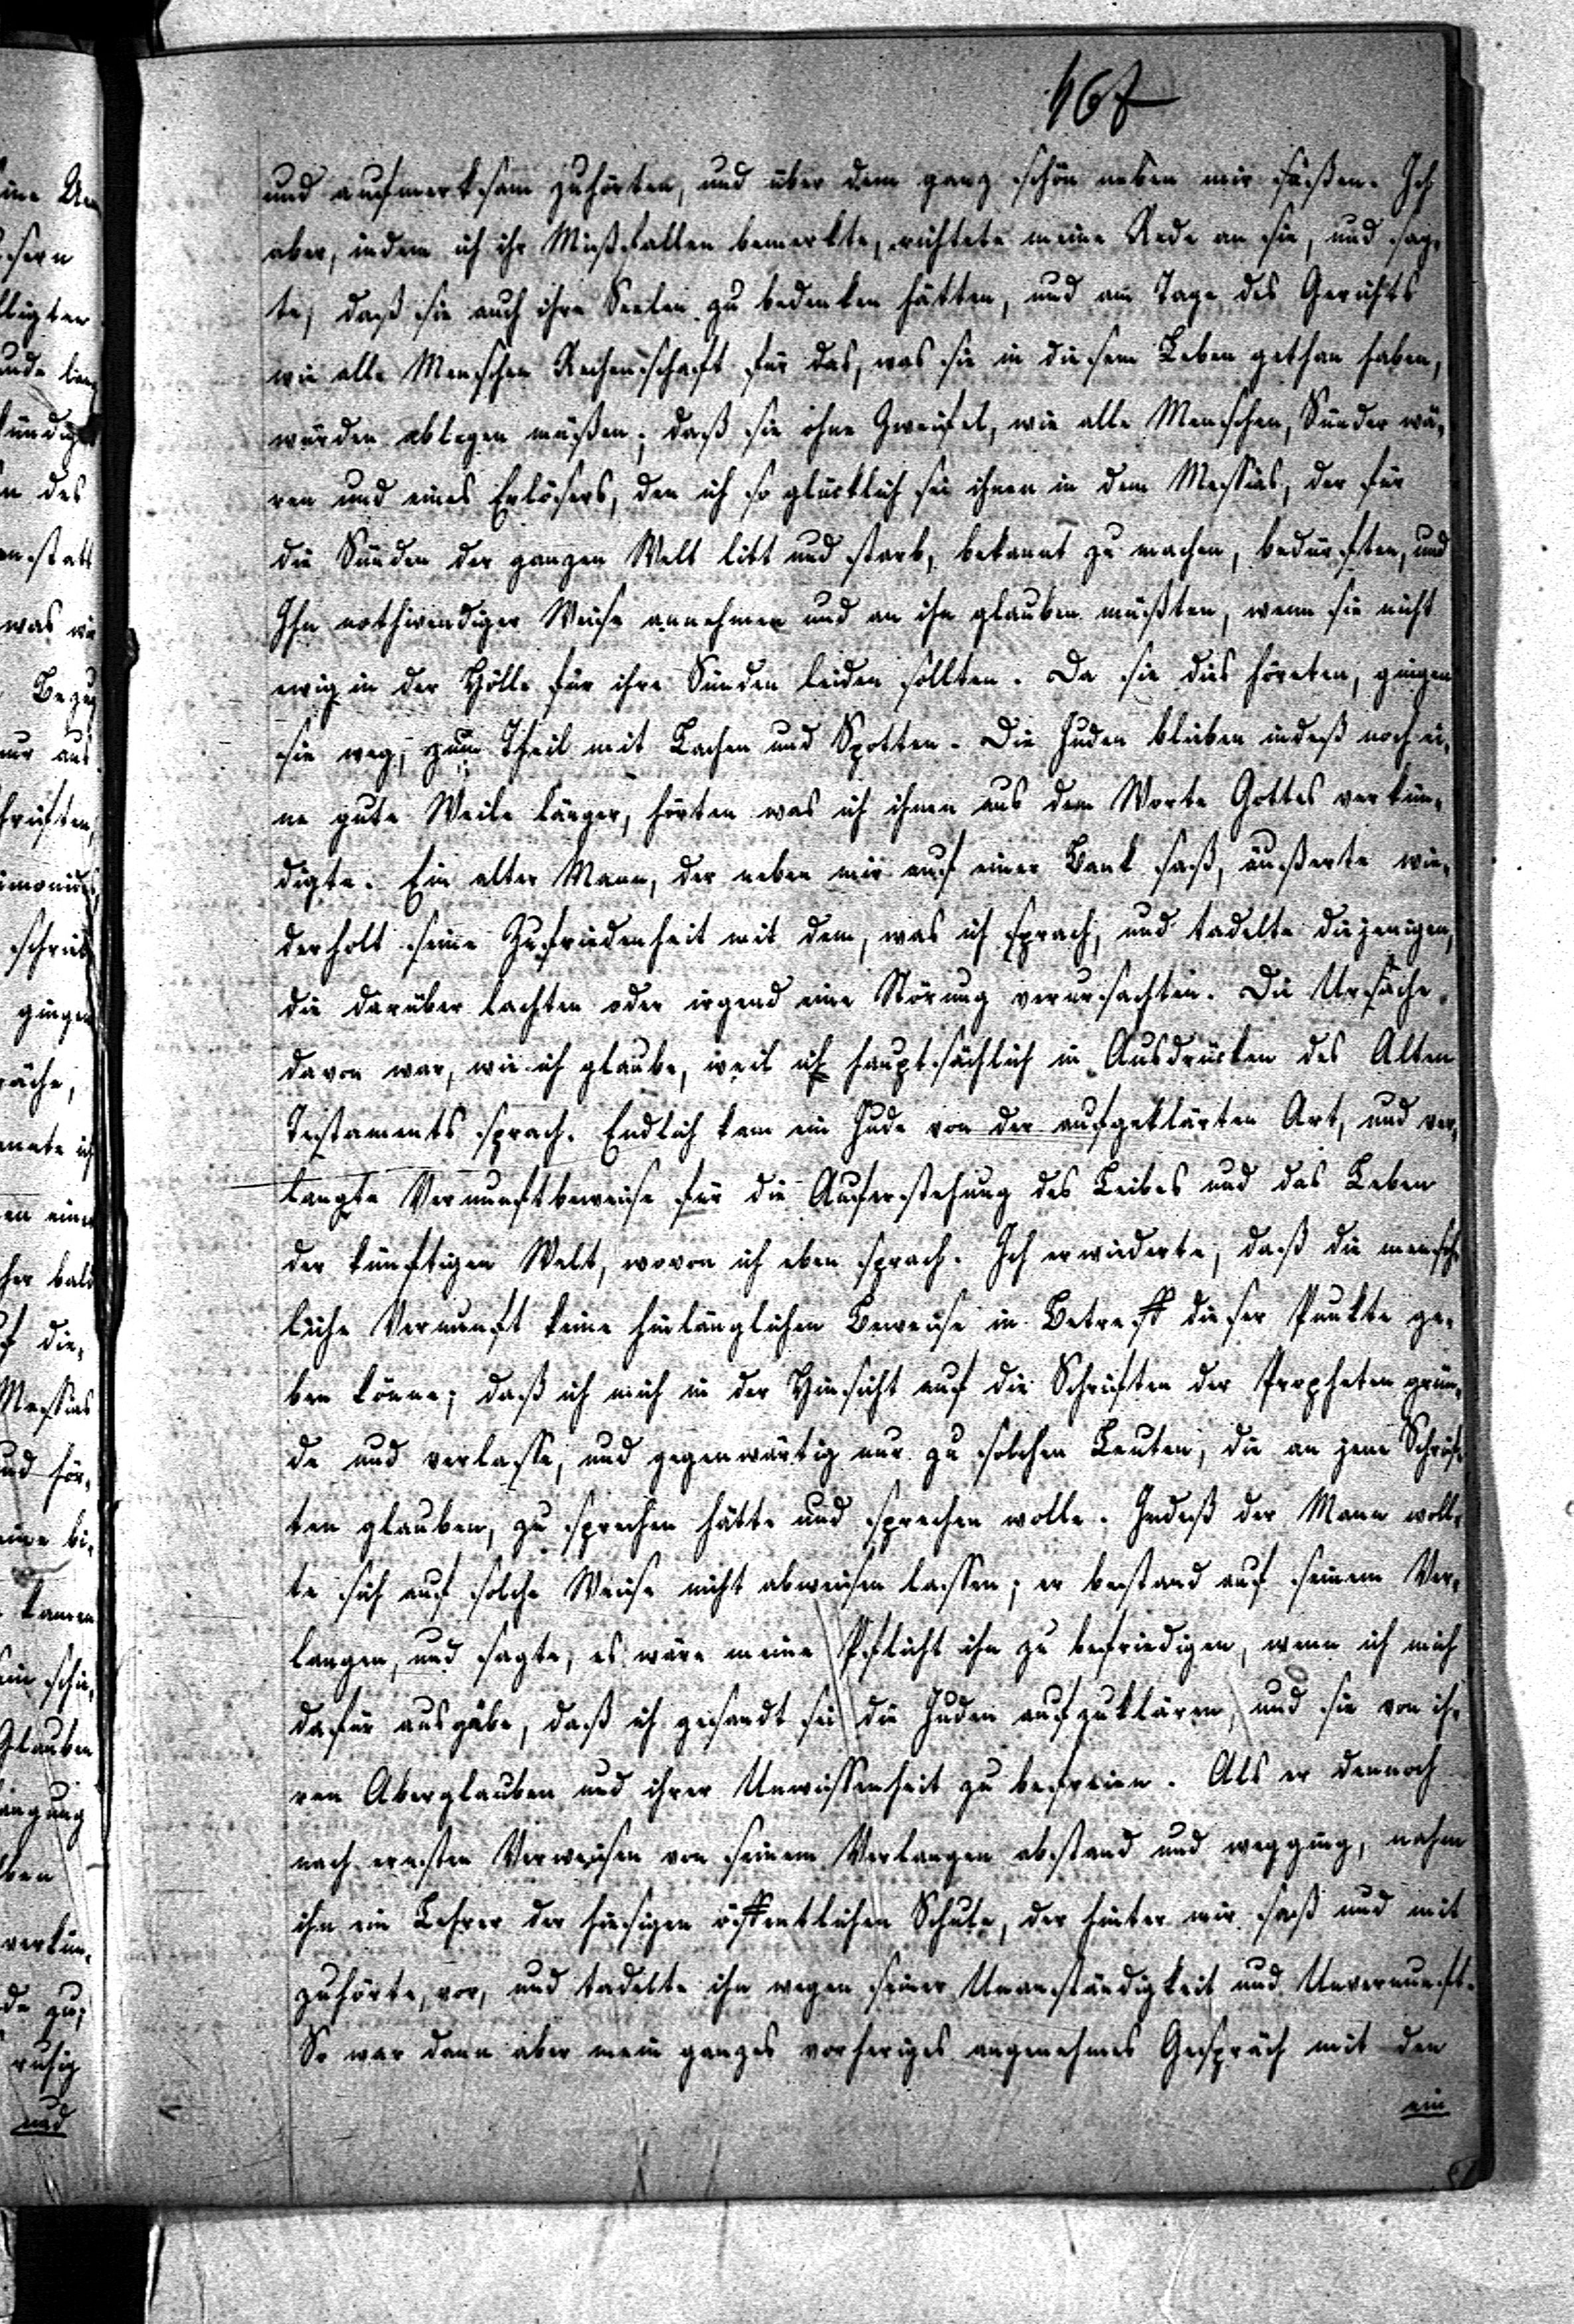 467
und aufmerksam zuhörten, und über dem ganz schön neben mir saßen. Ich
aber, indem ich ihr Mißfallen bemerkte, richtete meine Rede an sie, und sag-
te, daß sie auch ihre Seelen zu bedenken hätten, und am Tage des Gerichts
wie alle Menschen Rechenschaft für das, was sie in diesem Leben gethan haben,
würden ablegen müßen; daß sie ohne Zweifel, wie alle Menschen, Sünder wä-
ren und eines Erlösers, den ich so glücklich sei ihnen in dem Messias, der für
die Sünden der ganzen Welt litt und starb, bekannt zu machen, bedürften, und
Ihn nothwendiger Weise annehmen und an ihn glauben müßten, wenn sie nicht
ewig in der Hölle für ihre Sünden leiden sollten. Da sie dies höreten, gingen
sie weg, zum Theil mit Lachen und Spotten. Die Juden blieben indeß noch ei-
ne gute Weile länger, hörten was ich ihnen aus dem Worte Gottes verkün-
digte. Ein alter Mann, der neben mir auf einer Bank saß, äußerte wie-
derholt seine Zufriedenheit mit dem, was ich sprach, und tadelte diejenigen,
die darüber lachten oder irgend eine Störung verursachten. Die Ursache
davon war, wie ich glaube, weil ich hauptsächlich in Ausdrücken des Alten
Testaments sprach. Endlich kam ein Jude von der aufgeklärten Art, und ver-
langte Vernunftbeweise für die Auferstehung des Leibes und das Leben
der künftigen Welt, wovon ich eben sprach. Ich erwiederte, daß die mensch-
liche Vernunft keine hinlänglichen Beweise in Betreff dieser Punkte ge-
ben könne; daß ich mich in der Hinsicht auf die Schriften der Propheten grün-
de und verlasse, und gegenwärtig nur zu solchen Leuten, die an jene Schrif-
ten glauben, zu sprechen hätte und sprechen wolle. Indeß der Mann woll-
te sich auf solche Weise nicht abweisen lassen; er bestand auf seinem Ver-
langen, und sagte, es wäre meine Pflicht ihn zu befriedigen, wenn ich mich
dafür ausgäbe, daß ich gesandt sei die Juden aufzuklären, und sie von ih-
ren Aberglauben und ihrer Unwissenheit zu befreien. Als er dennoch
nach ernsten Verweisen von seinem Verlangen abstand und wegging, nahm
ihn ein Lehrer der hiesigen öffentlichen Schule, der hinter mir saß und mit
zuhörte, vor, und tadelte ihn wegen seiner Unanständigkeit und Unvernunft.
So war dann aber mein ganzes vorheriges angenehmes Gespräch mit den
ein